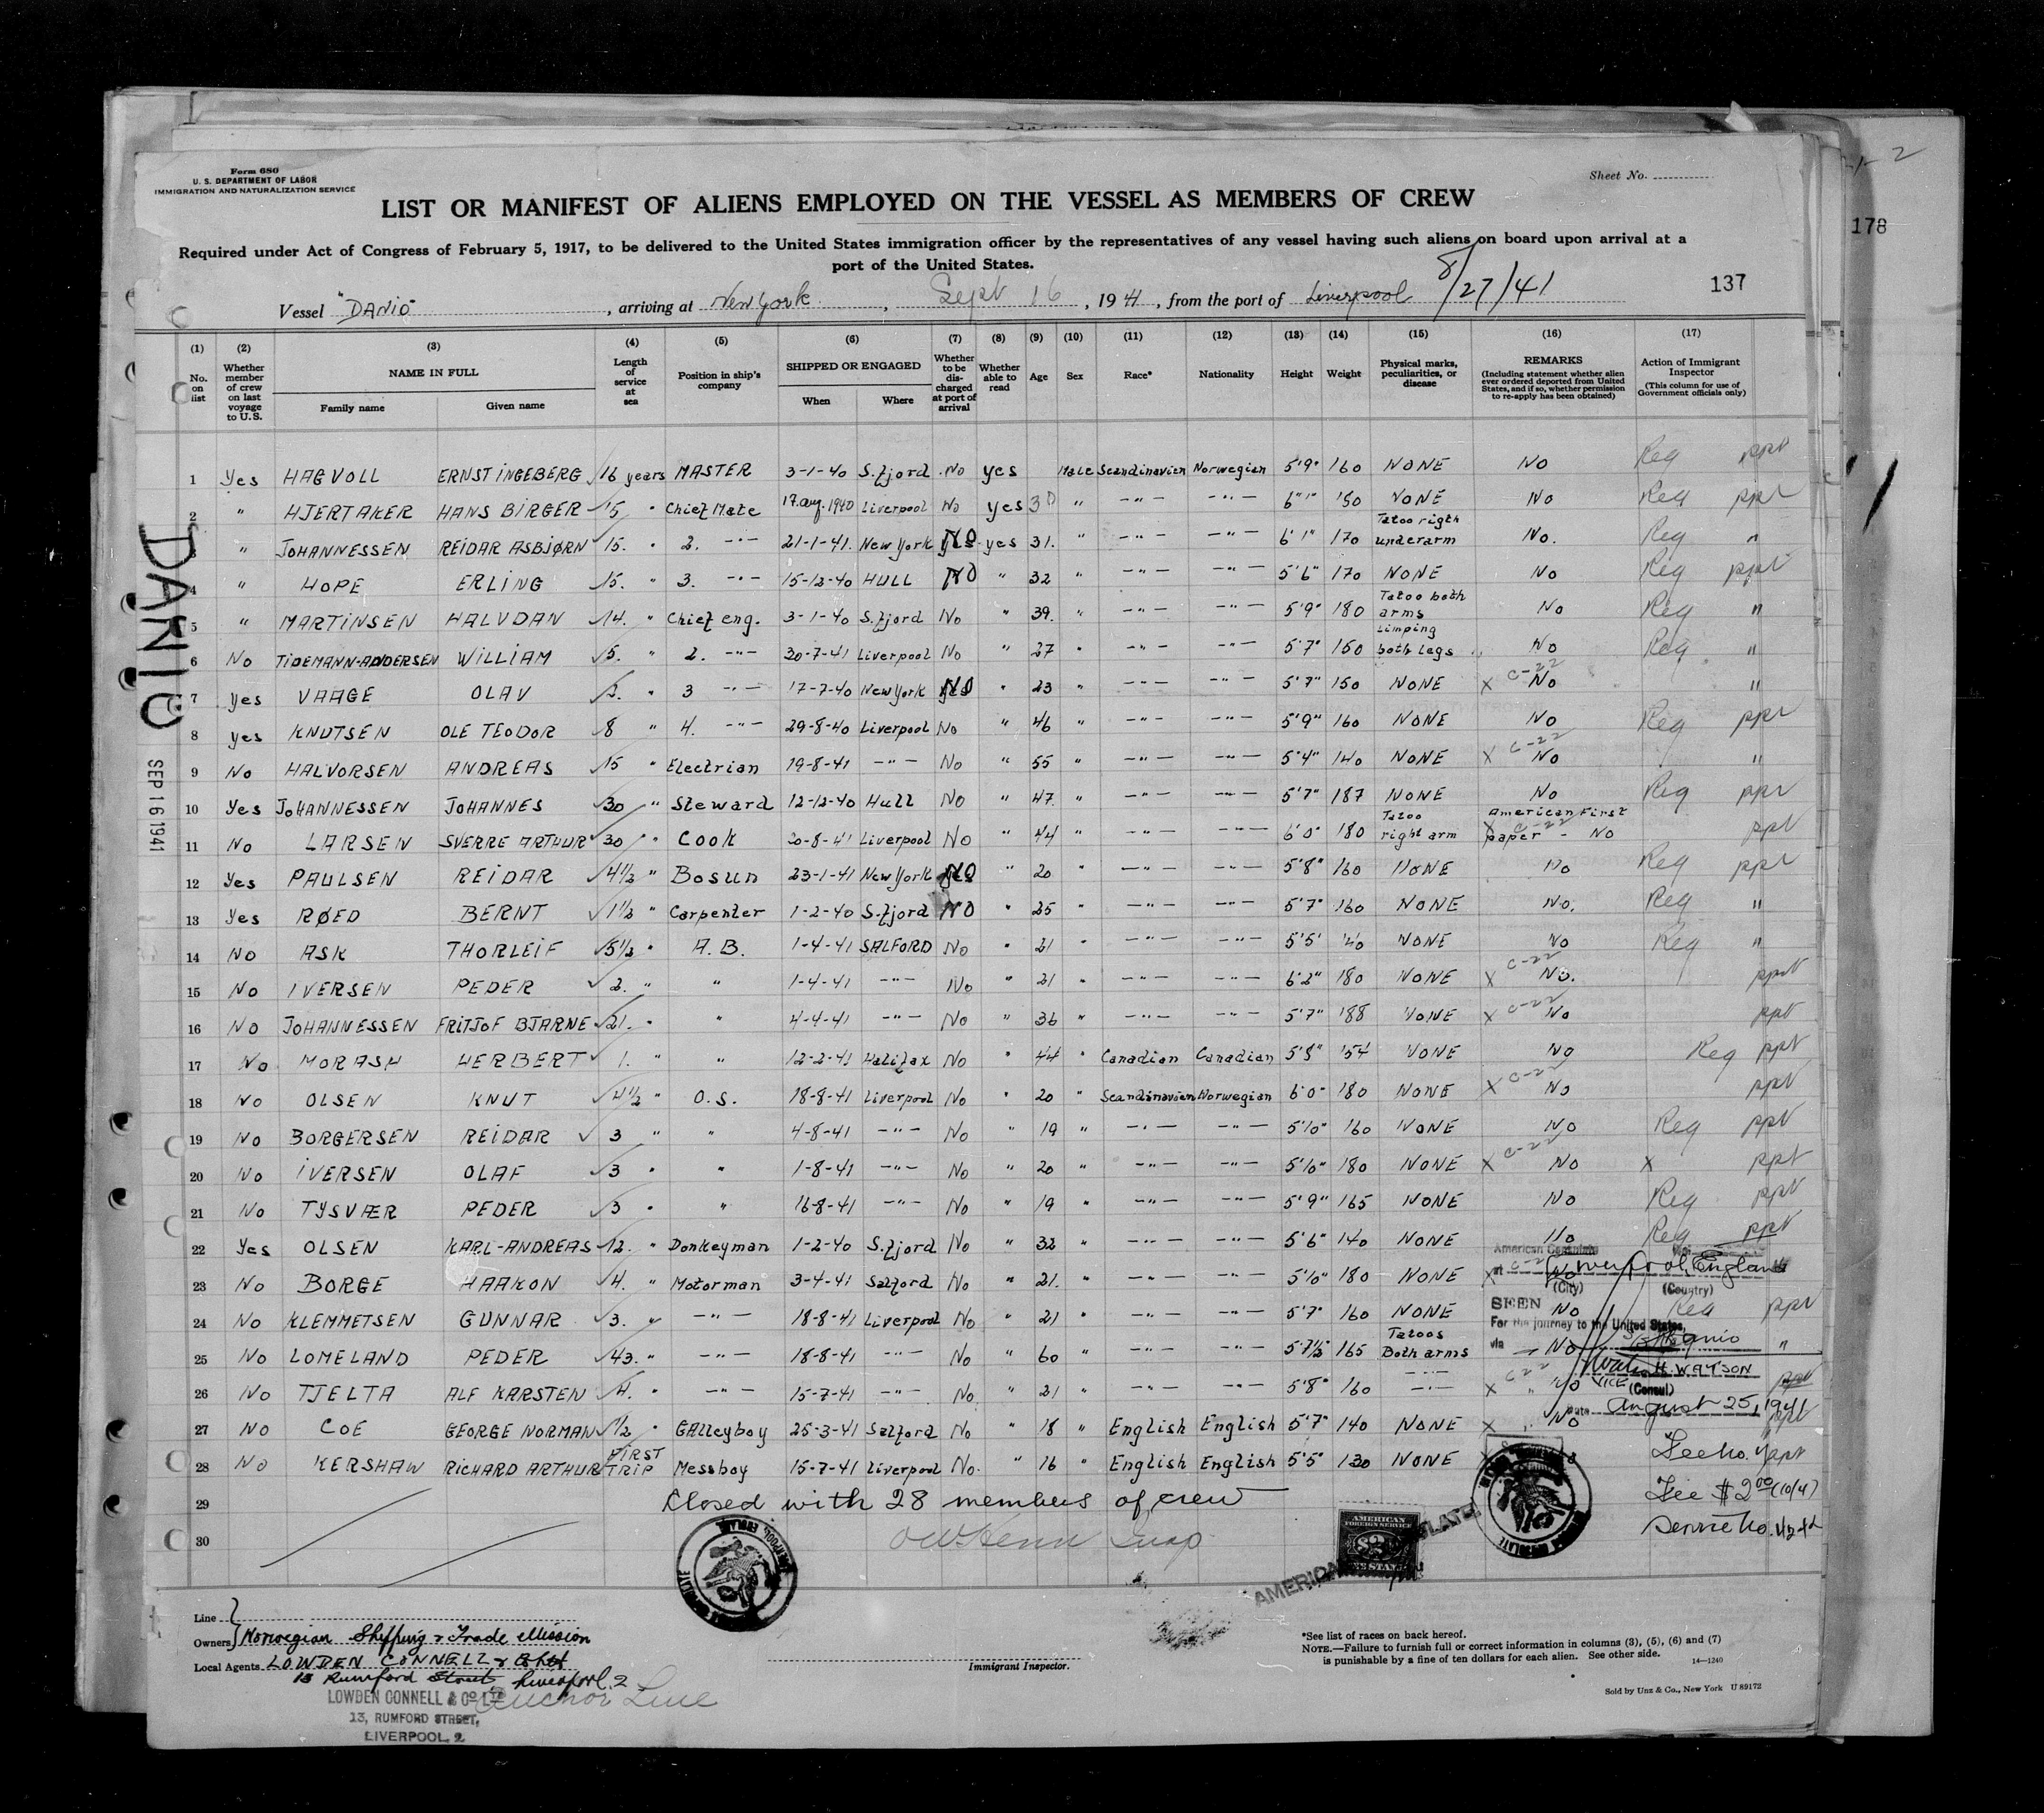 Form 680
U. S. DEPARTMENT OF LABOR
IMMIGRATION AND NATURALIZATION SERVICE
Sheet No.
2
178
LIST OR MANIFEST OF ALIENS EMPLOYED ON THE VESSEL AS MEMBERS OF CREW
Required under Act of Congress of February 5, 1917, to be delivered to the United States immigration officer by the representatives of any vessel having such aliens on board upon arrival at a
port of the United States.
137
Vessel "DANIO", arriving at New York, Sept 16, 1941, from the port of Liverpool 8/27/41
(1) (2) (3) (4) (5) (6) (7) (8) (9) (10) (11) (12) (13) (14) (15) (16) (17)
No. on list
Whether member of crew on last voyage to U. S.
NAME IN FULL
Family name Given name
Length of service at sea
Position in ship's company
SHIPPED OR ENGAGED
When Where
Whether to be discharged at port of arrival
Whether able to read
Age
Sex
Race*
Nationality
Height
Weight
Physical marks, peculiarities, or disease
REMARKS
(Including statement whether alien ever ordered deported from United States, and if so, whether permission to re-apply has been obtained)
Action of Immigrant Inspector
(This column for use of Government officials only)
1 Yes HAGVOLL ERNST INGEBERG 16 years MASTER 3-1-40 S.fjord No yes Male Scandinavien Norwegian 5'9" 160 NONE No Reg ppt
2 " HJERTAKER HANS BIRGER 15 " Chief Mate 17.aug.1940 Liverpool No yes 30 " -"- -"- 6'1" 150 NONE No Reg ppt
3 " JOHANNESSEN REIDAR ASBJØRN 15. " 2. -"- 21-1-41. New York NO yes 31. " -"- -"- 6'1" 170 Tatoo rigth underarm No. Reg "
4 " HOPE ERLING 15. " 3. -"- 15-12-40 HULL NO " 32 " -"- -"- 5'6" 170 NONE No Reg ppt
5 " MARTINSEN HALVDAN 14. " Chief eng. 3-1-40 S.fjord No " 39. " -"- -"- 5'9" 180 Tatoo both arms No Reg "
6 No TIDEMANN-ANDERSEN WILLIAM 5. " 2. -"- 30-7-41 Liverpool No " 27 " -"- -"- 5'7" 150 Limping both legs No Reg "
7 yes VAAGE OLAV " 3 -"- 17-7-40 New York NO " 23 " -"- -"- 5'7" 150 NONE X C-22 No "
8 yes KNUTSEN OLE TEODOR 8 " 4. -"- 29-8-40 Liverpool No " 46 " -"- -"- 5'9" 160 NONE No Reg ppt
9 No HALVORSEN ANDREAS 15 " Electrian 19-8-41 -"- No " 55 " -"- -"- 5'4" 140 NONE X C-22 No "
10 Yes JOHANNESSEN JOHANNES 30 " Steward 12-12-40 Hull No " 47. " -"- -"- 5'7" 187 NONE No Reg ppt
11 No LARSEN SVERRE ARTHUR 30 " Cook 20-8-41 Liverpool No " 44 " -"- -"- 6'0" 180 Tatoo right arm American First paper - No X C-22 ppt
12 Yes PAULSEN REIDAR 4½ " Bosun 23-1-41 New York NO " 20 " -"- -"- 5'8" 160 NONE No Reg ppt
13 Yes RØED BERNT 1½ " Carpenter 1-2-40 S.fjord NO " 25 " -"- -"- 5'7" 160 NONE No. Reg "
14 No ASK THORLEIF 5½ " A.B. 1-4-41 SALFORD No " 21 " -"- -"- 5'5" 140 NONE No Reg "
15 No IVERSEN PEDER 2. " " 1-4-41 -"- No " 21 " -"- -"- 6'2" 180 NONE X C-22 No. ppt
16 No JOHANNESSEN FRITJOF BJARNE 21. " " 4-4-41 -"- No " 36 " -"- -"- 5'7" 188 NONE X C-22 No ppt
17 No MORASH HERBERT 1. " " 12-2-41 Halifax No " 44 " Canadian Canadian 5'8" 154 NONE No Reg ppt
18 No OLSEN KNUT 4½ " O.S. 18-8-41 Liverpool No " 20 " Scandinavien Norwegian 6'0" 180 NONE X C-22 No ppt
19 No BORGERSEN REIDAR 3 " " 4-8-41 -"- No " 19 " -"- -"- 5'10" 160 NONE No Reg ppt
20 No IVERSEN OLAF 3 " " 1-8-41 -"- No " 20 " -"- -"- 5'10" 180 NONE X C-22 No X ppt
21 No TYSVÆR PEDER 3 " " 16-8-41 -"- No " 19 " -"- -"- 5'9" 165 NONE No Reg ppt
22 Yes OLSEN KARL-ANDREAS 12. " Donkeyman 1-2-40 S.fjord No " 32 " -"- -"- 5'6" 140 NONE No Reg ppt
23 No BORGE HAAKON 4. " Motorman 3-4-41 Salford No " 21. " -"- -"- 5'10" 180 NONE X No
24 No KLEMMETSEN GUNNAR 3. " -"- 18-8-41 Liverpool No " 21 " -"- -"- 5'7" 160 NONE No Reg ppt
25 No LOMELAND PEDER 43. " -"- 18-8-41 -"- No " 60 " -"- -"- 5'7½" 165 Tatoos Both arms No "
26 No TJELTA ALF KARSTEN 4. " -"- 15-7-41 -"- No. " 21 " -"- -"- 5'8" 160 -"- X C-22 No ppt
27 No COE GEORGE NORMAN 1/2 " Galleyboy 25-3-41 Salford No " 18 " English English 5'7" 140 NONE X No ppt
28 No KERSHAW RICHARD ARTHUR FIRST TRIP Messboy 15-7-41 Liverpool No. " 16 " English English 5'5" 130 NONE ppt
29 Closed with 28 members of crew
30
American
at Liverpool, England
(City) (Country)
SEEN
For the journey to the United States,
via
H. WATSON
VICE (Consul)
Date August 25, 1941
Fee No.
Fee $2.00 (10/4)
Service No.
AMERICAN FOREIGN SERVICE
$2
DANIO
SEP 16 1941
Line
Owners Norwegian Shipping & Trade Mission
Local Agents LOWDEN CONNELL &
13 Rumford Street Liverpool. 2
LOWDEN CONNELL & CO LTD
Anchor Line
13, RUMFORD STREET,
LIVERPOOL, 2
Immigrant Inspector.
*See list of races on back hereof.
NOTE.—Failure to furnish full or correct information in columns (3), (5), (6) and (7)
is punishable by a fine of ten dollars for each alien. See other side.
14—1240
Sold by Unz & Co., New York U 89172